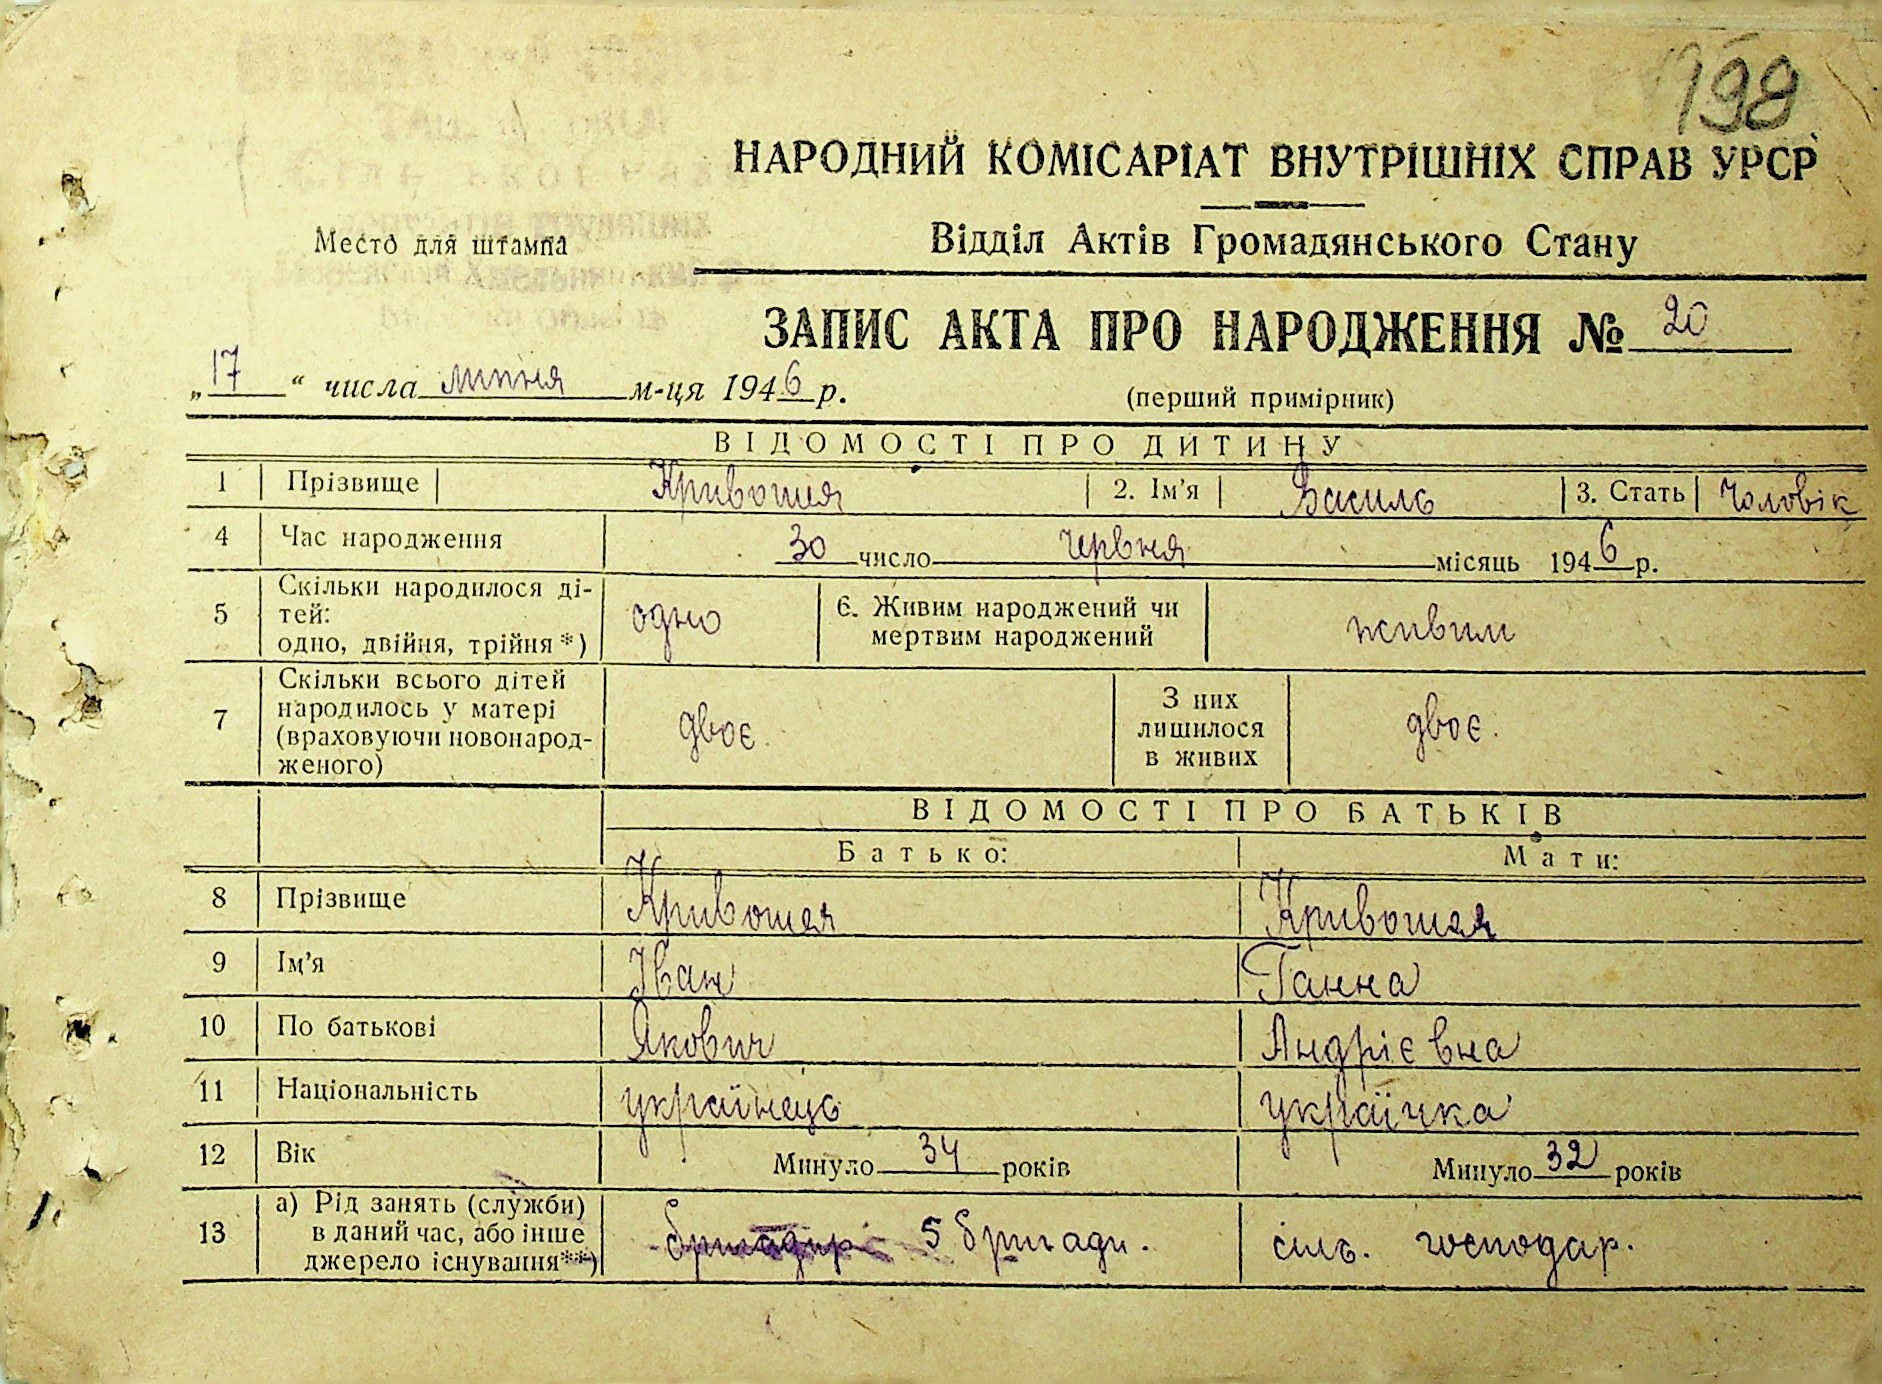 198
НАРОДНИЙ КОМІСАРІАТ ВНУТРІШНІХ СПРАВ УРСР
Место для штампа
Відділ Актів Громадянського Стану
ЗАПИС АКТА ПРО НАРОДЖЕННЯ № 20
„17“ числа липня м-ця 1946 р.
(перший примірник)
ВІДОМОСТІ ПРО ДИТИНУ
1 Прізвище Кривошея 2. Ім'я Василь 3. Стать Чоловік
4 Час народження 30 число червня місяць 1946 р.
5 Скільки народилося ді-
тей:
одно, двійня, трійня *)
одно
6. Живим народжений чи
мертвим народжений
живим
7 Скільки всього дітей
народилось у матері
(враховуючи новонарод-
женого)
двоє.
З них
лишилося
в живих
двоє.
ВІДОМОСТІ ПРО БАТЬКІВ
Батько: Мати:
8 Прізвище Кривошея Кривошея
9 Ім'я Іван Ганна
10 По батькові Якович Андрієвна
11 Національність українець українка
12 Вік Минуло 34 років Минуло 32 років
13 а) Рід занять (служби)
в даний час, або інше
джерело існування**)
бригадир 5 бригади.
сіль. господар.